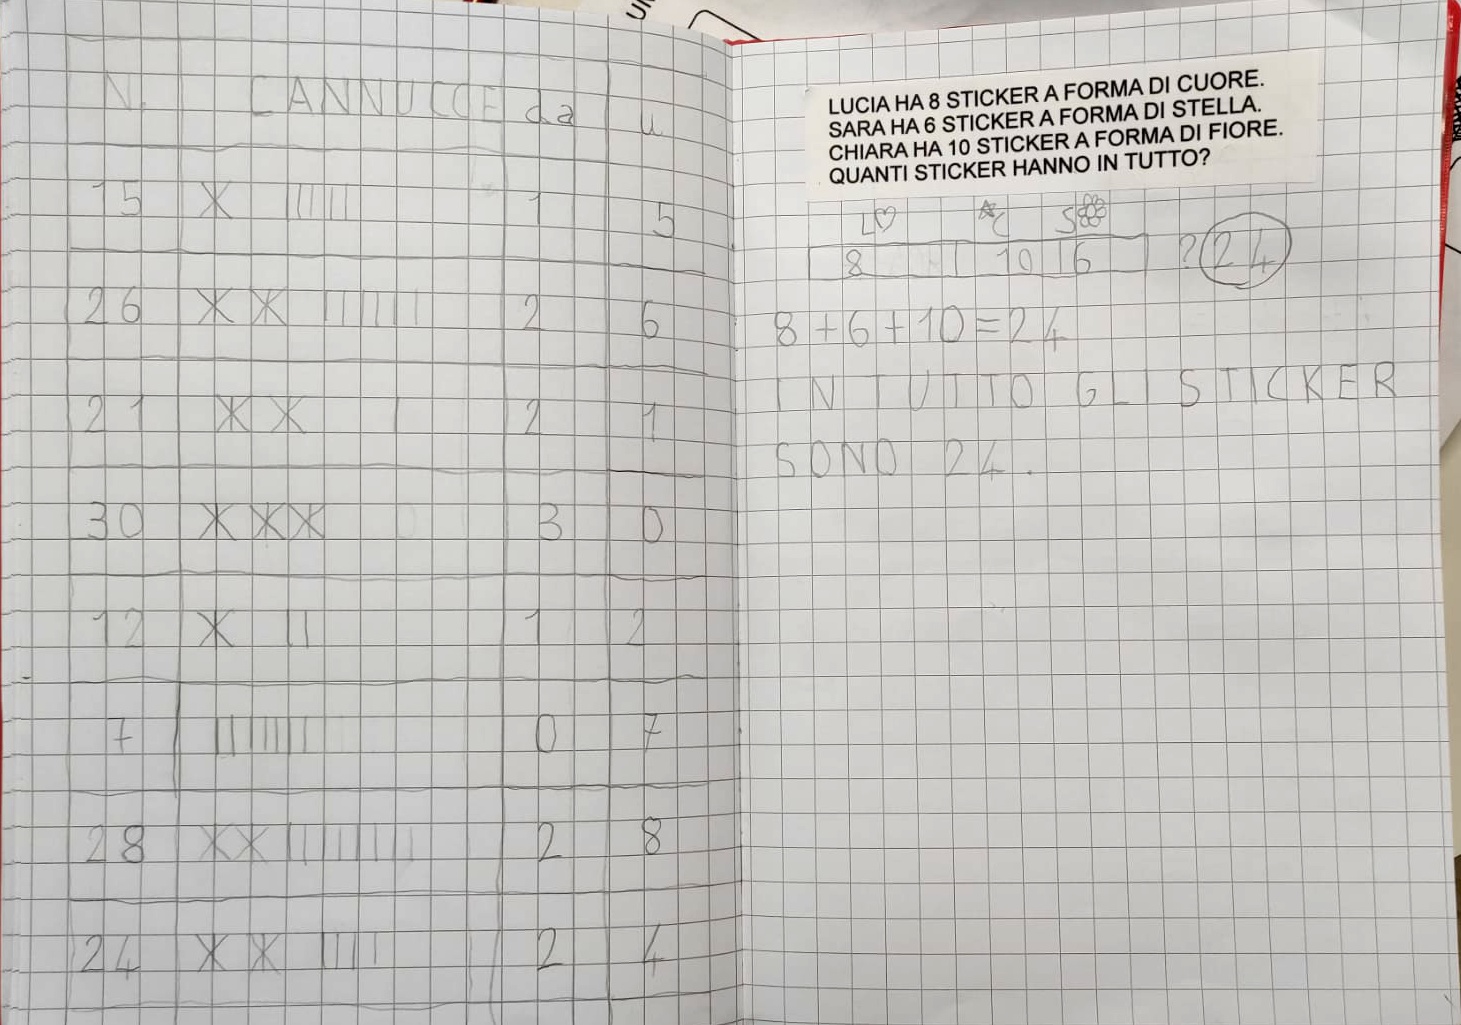 N. CANNUCCE da u
15 X ||||| 1 5
26 X X |||||| 2 6
21 X X | 2 1
30 X X X 3 0
12 X || 1 2
7 ||||||| 0 7
28 X X |||||||| 2 8
24 X X |||| 2 4
LUCIA HA 8 STICKER A FORMA DI CUORE.
SARA HA 6 STICKER A FORMA DI STELLA.
CHIARA HA 10 STICKER A FORMA DI FIORE.
QUANTI STICKER HANNO IN TUTTO?
L C S
8 10 6 ? 24
8+6+10=24
IN TUTTO GLI STICKER
SONO 24.